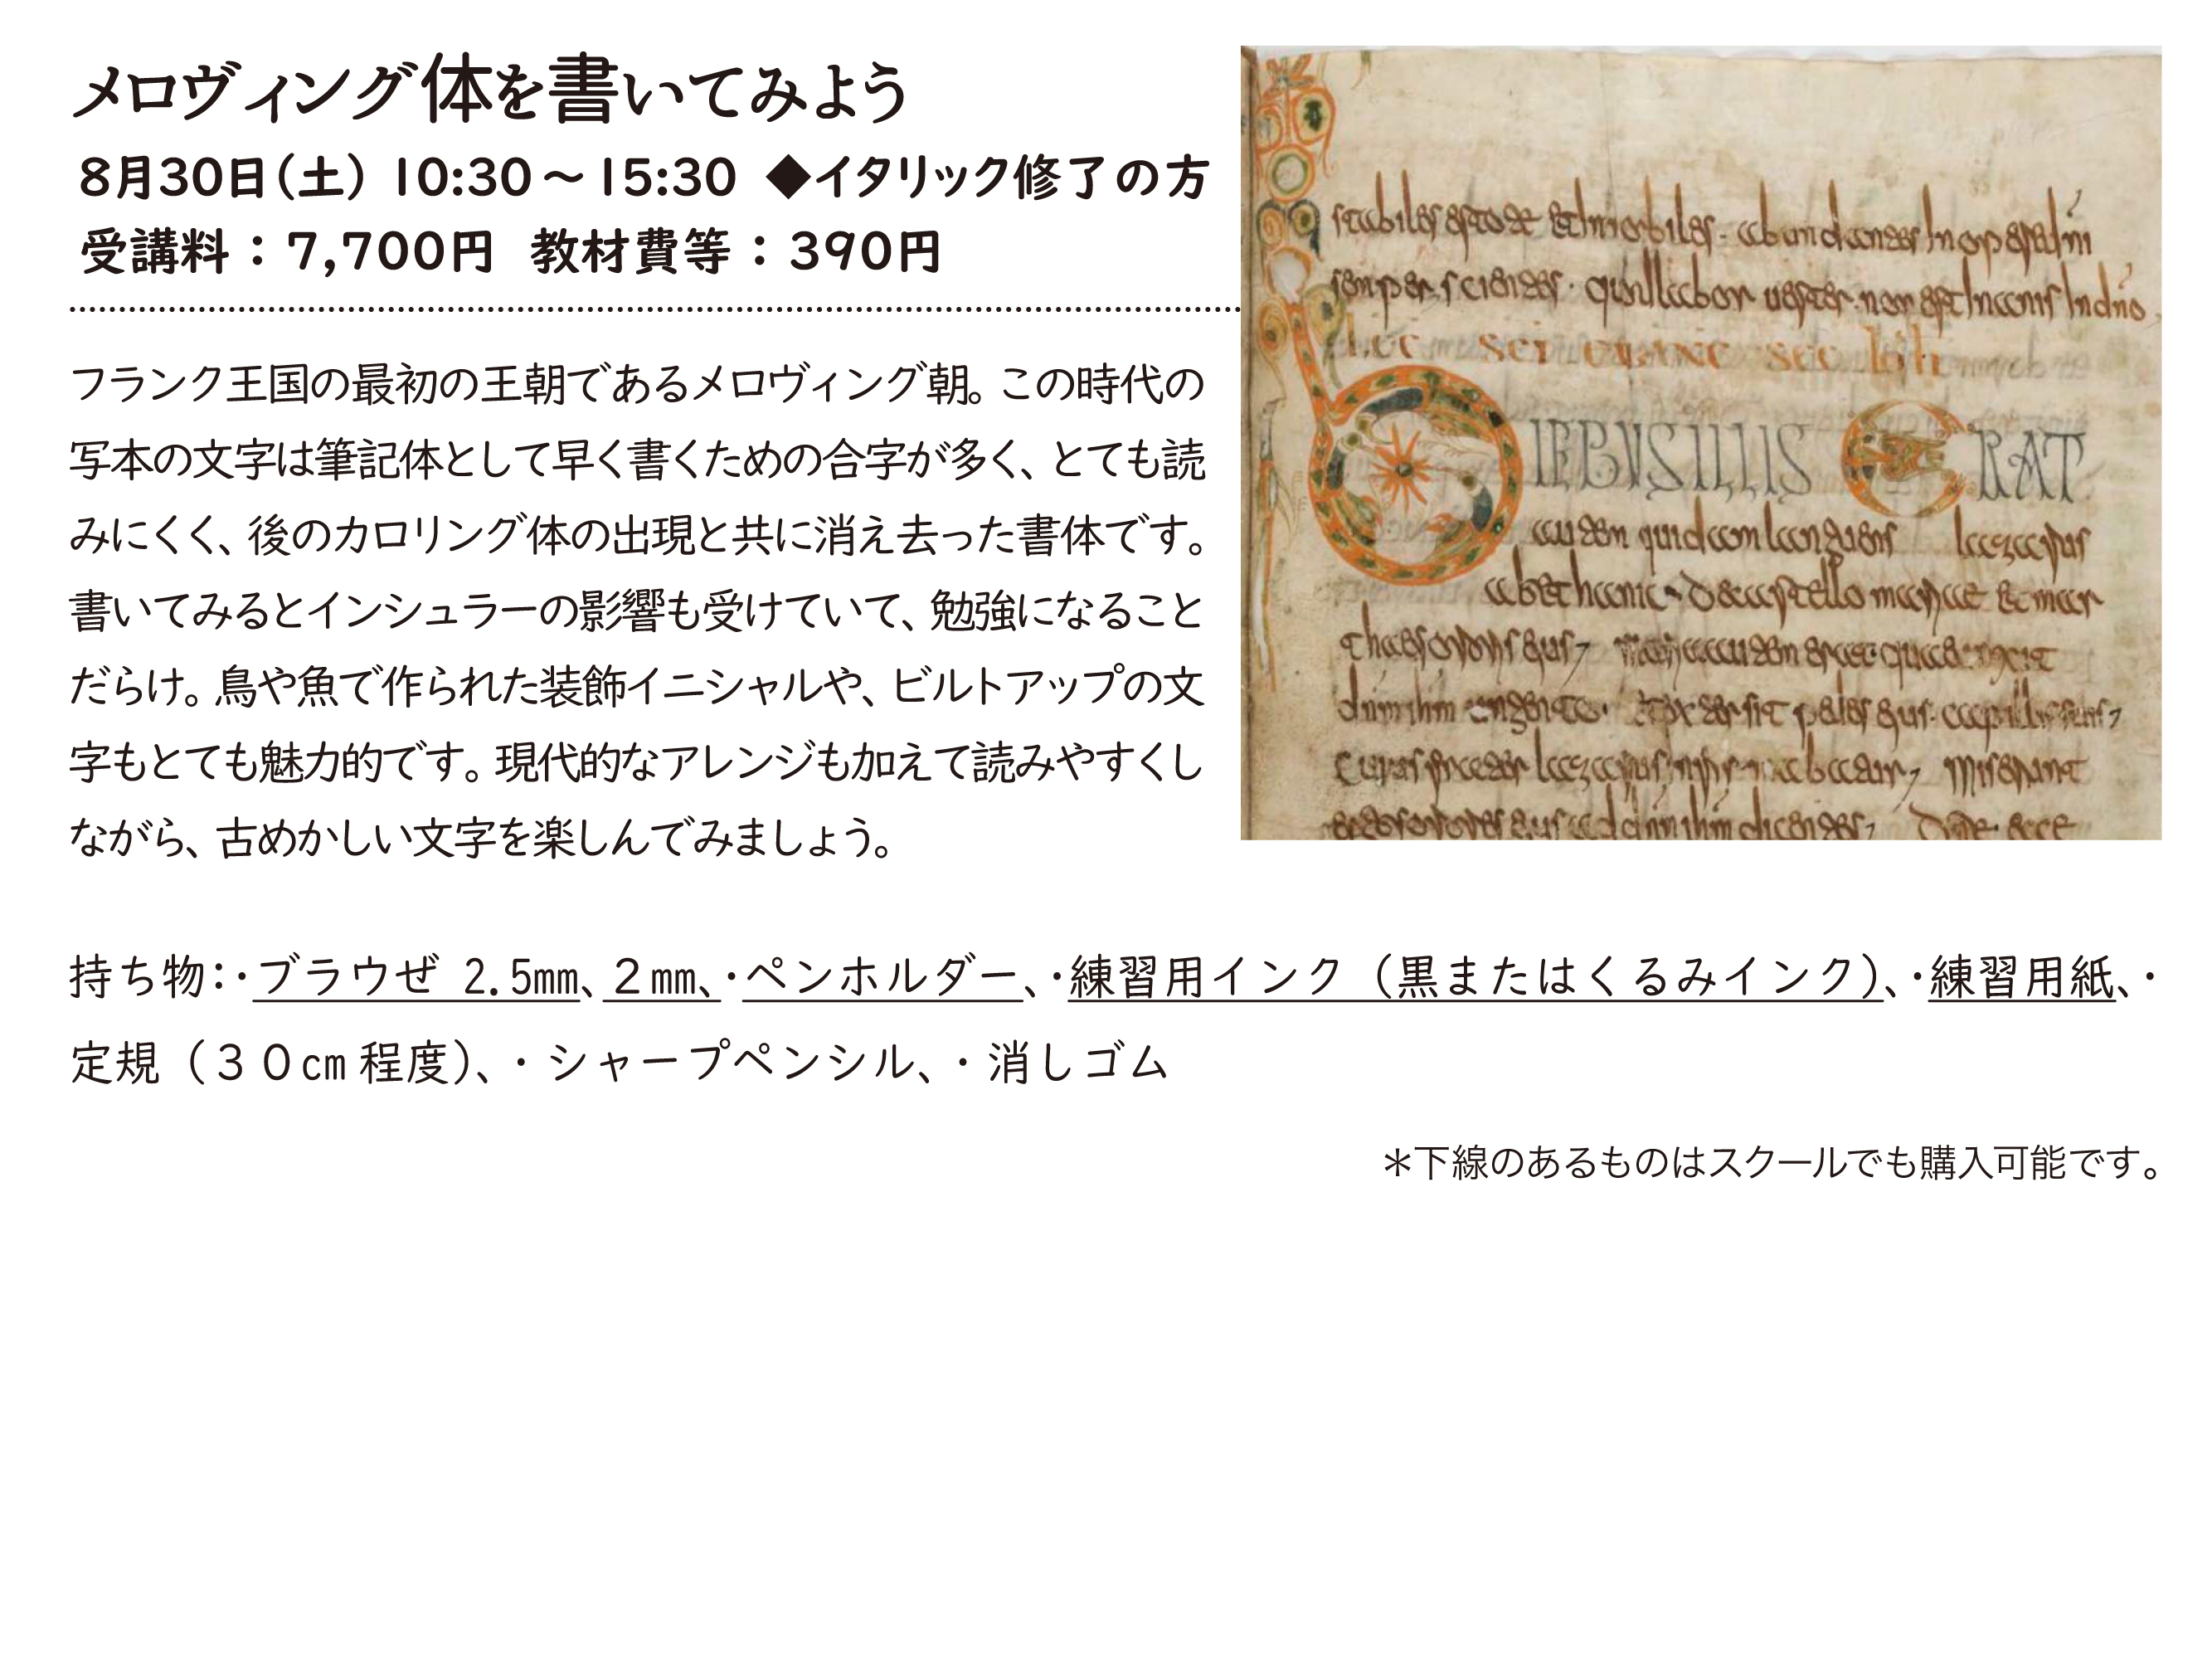 メロヴィング体を書いてみよう
8月30日(土) 10:30～15:30 ◆イタリック修了の方
受講料：7,700円 教材費等：390円
フランク王国の最初の王朝であるメロヴィング朝。この時代の
写本の文字は筆記体として早く書くための合字が多く、とても読
みにくく、後のカロリング体の出現と共に消え去った書体です。
書いてみるとインシュラーの影響も受けていて、勉強になること
だらけ。鳥や魚で作られた装飾イニシャルや、ビルトアップの文
字もとても魅力的です。現代的なアレンジも加えて読みやすくし
ながら、古めかしい文字を楽しんでみましょう。
stabiles estote et inmobiles. abundantes in opere dni
semper scientes. quod labor uester non est inanis in dno
DIEBUS ILLIS ERAT
autem quidam languens lazarus
持ち物：・ブラウゼ 2.5mm、２mm、・ペンホルダー、・練習用インク（黒またはくるみインク）、・練習用紙、・
定規（３０cm程度）、・シャープペンシル、・消しゴム
＊下線のあるものはスクールでも購入可能です。